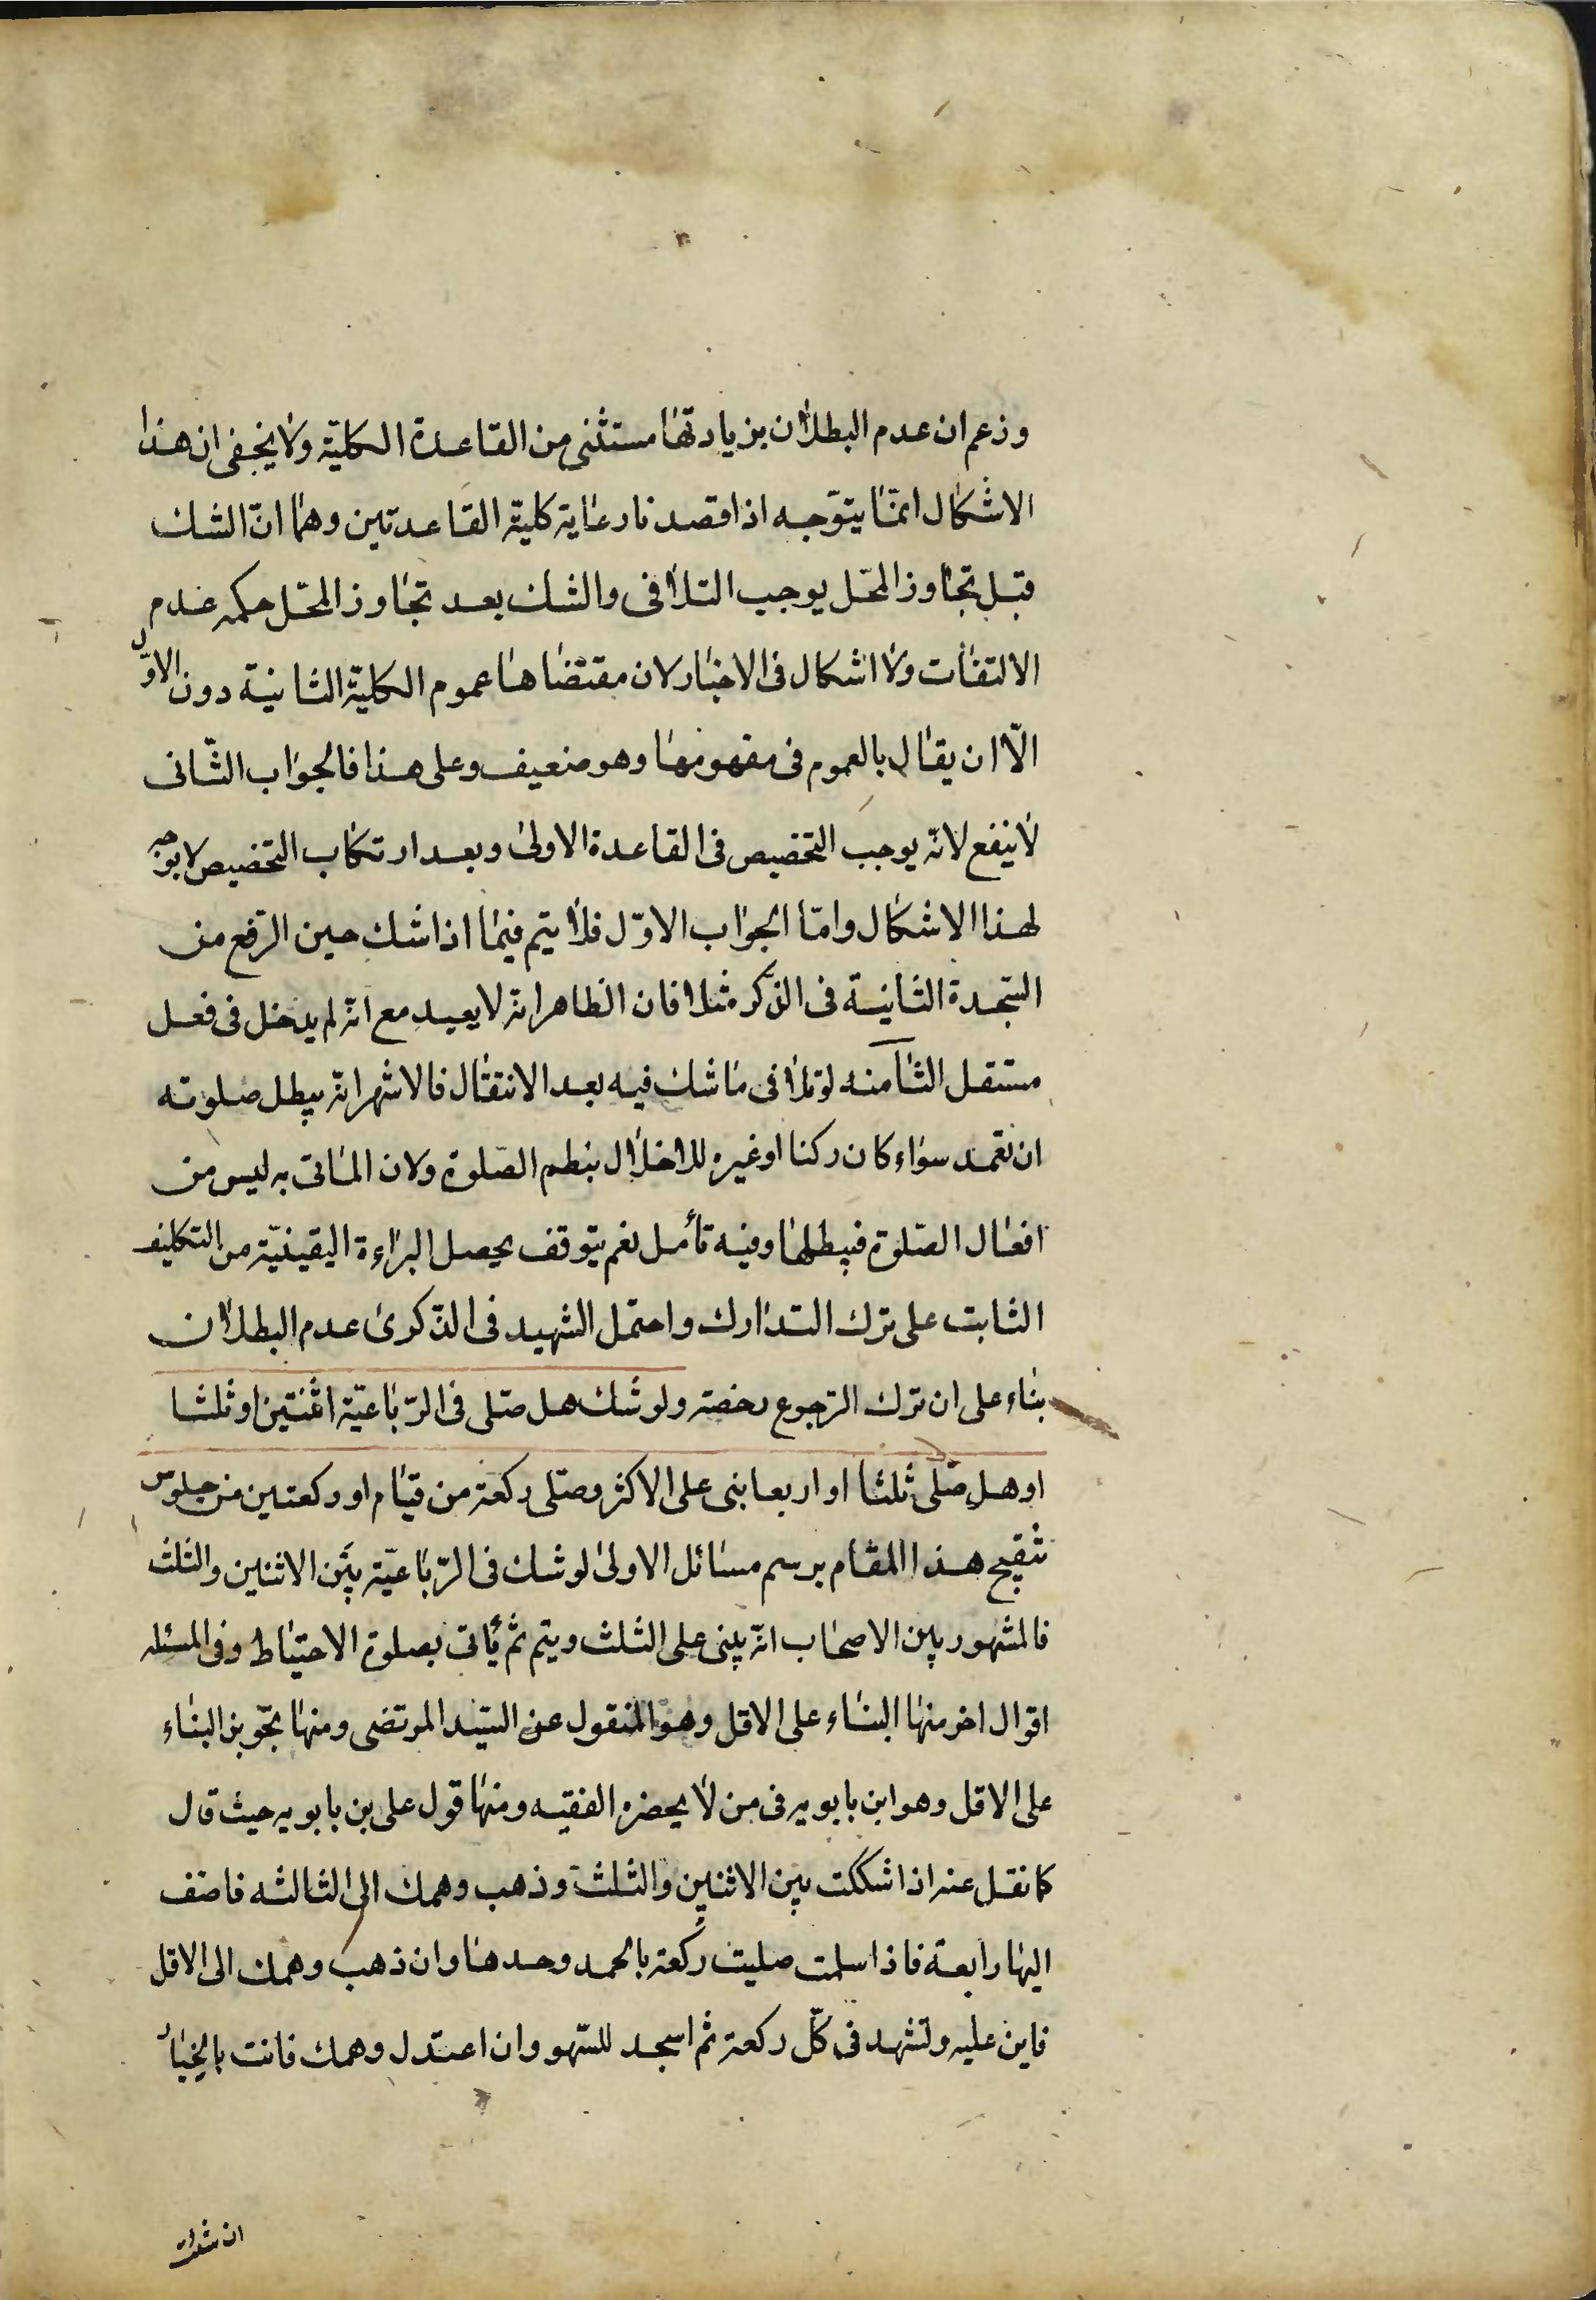 وزعم ان عدم البطلان بزيادتها مستثنى من القاعدة الكلية ولا يخفى ان هذا
الاشكال انمّا يتوّجه اذا قصدنا رعاية كليّة القاعدتين وهما انّ الشك
قبل تجاوز المحّل يوجب التلافى والشك بعد تجاوز المحّل حكمه عدم
الالتفات ولا اشكال فى الاخبار لان مقتضاها عموم الكليّة الثانية دون الاوّل
الّا ان يقال بالعموم فى مفهومها وهو ضعيف وعلى هذا فالجواب الثّانى
لا ينفع لانّه يوجب التخصيص فى القاعدة الاولى وبعد ارتكاب التخصيص لا يوجه
لهذا الاشكال وامّا الجواب الاوّل فلا يتم فيما اذا شك حين الرّفع من
السّجدة الثانية فى الذّكر مثلا فان الظاهر انّه لا يعيد مع انّه لم يدخل فى فعل
مستقل الثامنه لو تلافى ما شك فيه بعد الانتقال فالاشهر انّه يبطل صلوته
ان تعمد سواء كان ركنا او غيره للاخلال بنظم الصّلوة ولان الماتى به ليس من
افعال الصّلوة فيبطلها وفيه تأمل نعم يتوقف يحصل البراءة اليقينيّة من التكليف
الثابت على ترك التدارك واحتمل الشهيد فى الذّكرى عدم البطلان
بناء على ان ترك الرّجوع رخصة ولو شك هل صّلى فى الرّباعيّة اثنتين او ثلثا
او هل صّلى ثلثا او اربعا بنى على الاكثر وصّلى ركعة من قيام او ركعتين من جلوس
تنقيح هذا المقام برسم مسائل الاولى لو شك فى الرّباعيّة بين الاثنين والثلث
فالمشهور بين الاصحاب انّه يبنى على الثلث ويتم ثم يأتى بصلوة الاحتياط وفى المسئله
اقوال اخر منها البناء على الاقل وهو المنقول عن السّيد المرتضى ومنها تجّويز البناء
على الاقل وهو ابن بابويه فى من لا يحضره الفقيه ومنها قول على بن بابويه حيث قال
كما نقل عنه اذا شككت بين الاثنين والثلث وذهب وهمك الى الثالثه فاضف
اليها رابعة فاذا سلمت صليت ركعة بالحمد وحدها وان ذهب وهمك الى الاقل
فابن عليه وتشهد فى كلّ ركعة ثم اسجد للسّهو وان اعتدل وهمك فانت بالخيار
ان شئت